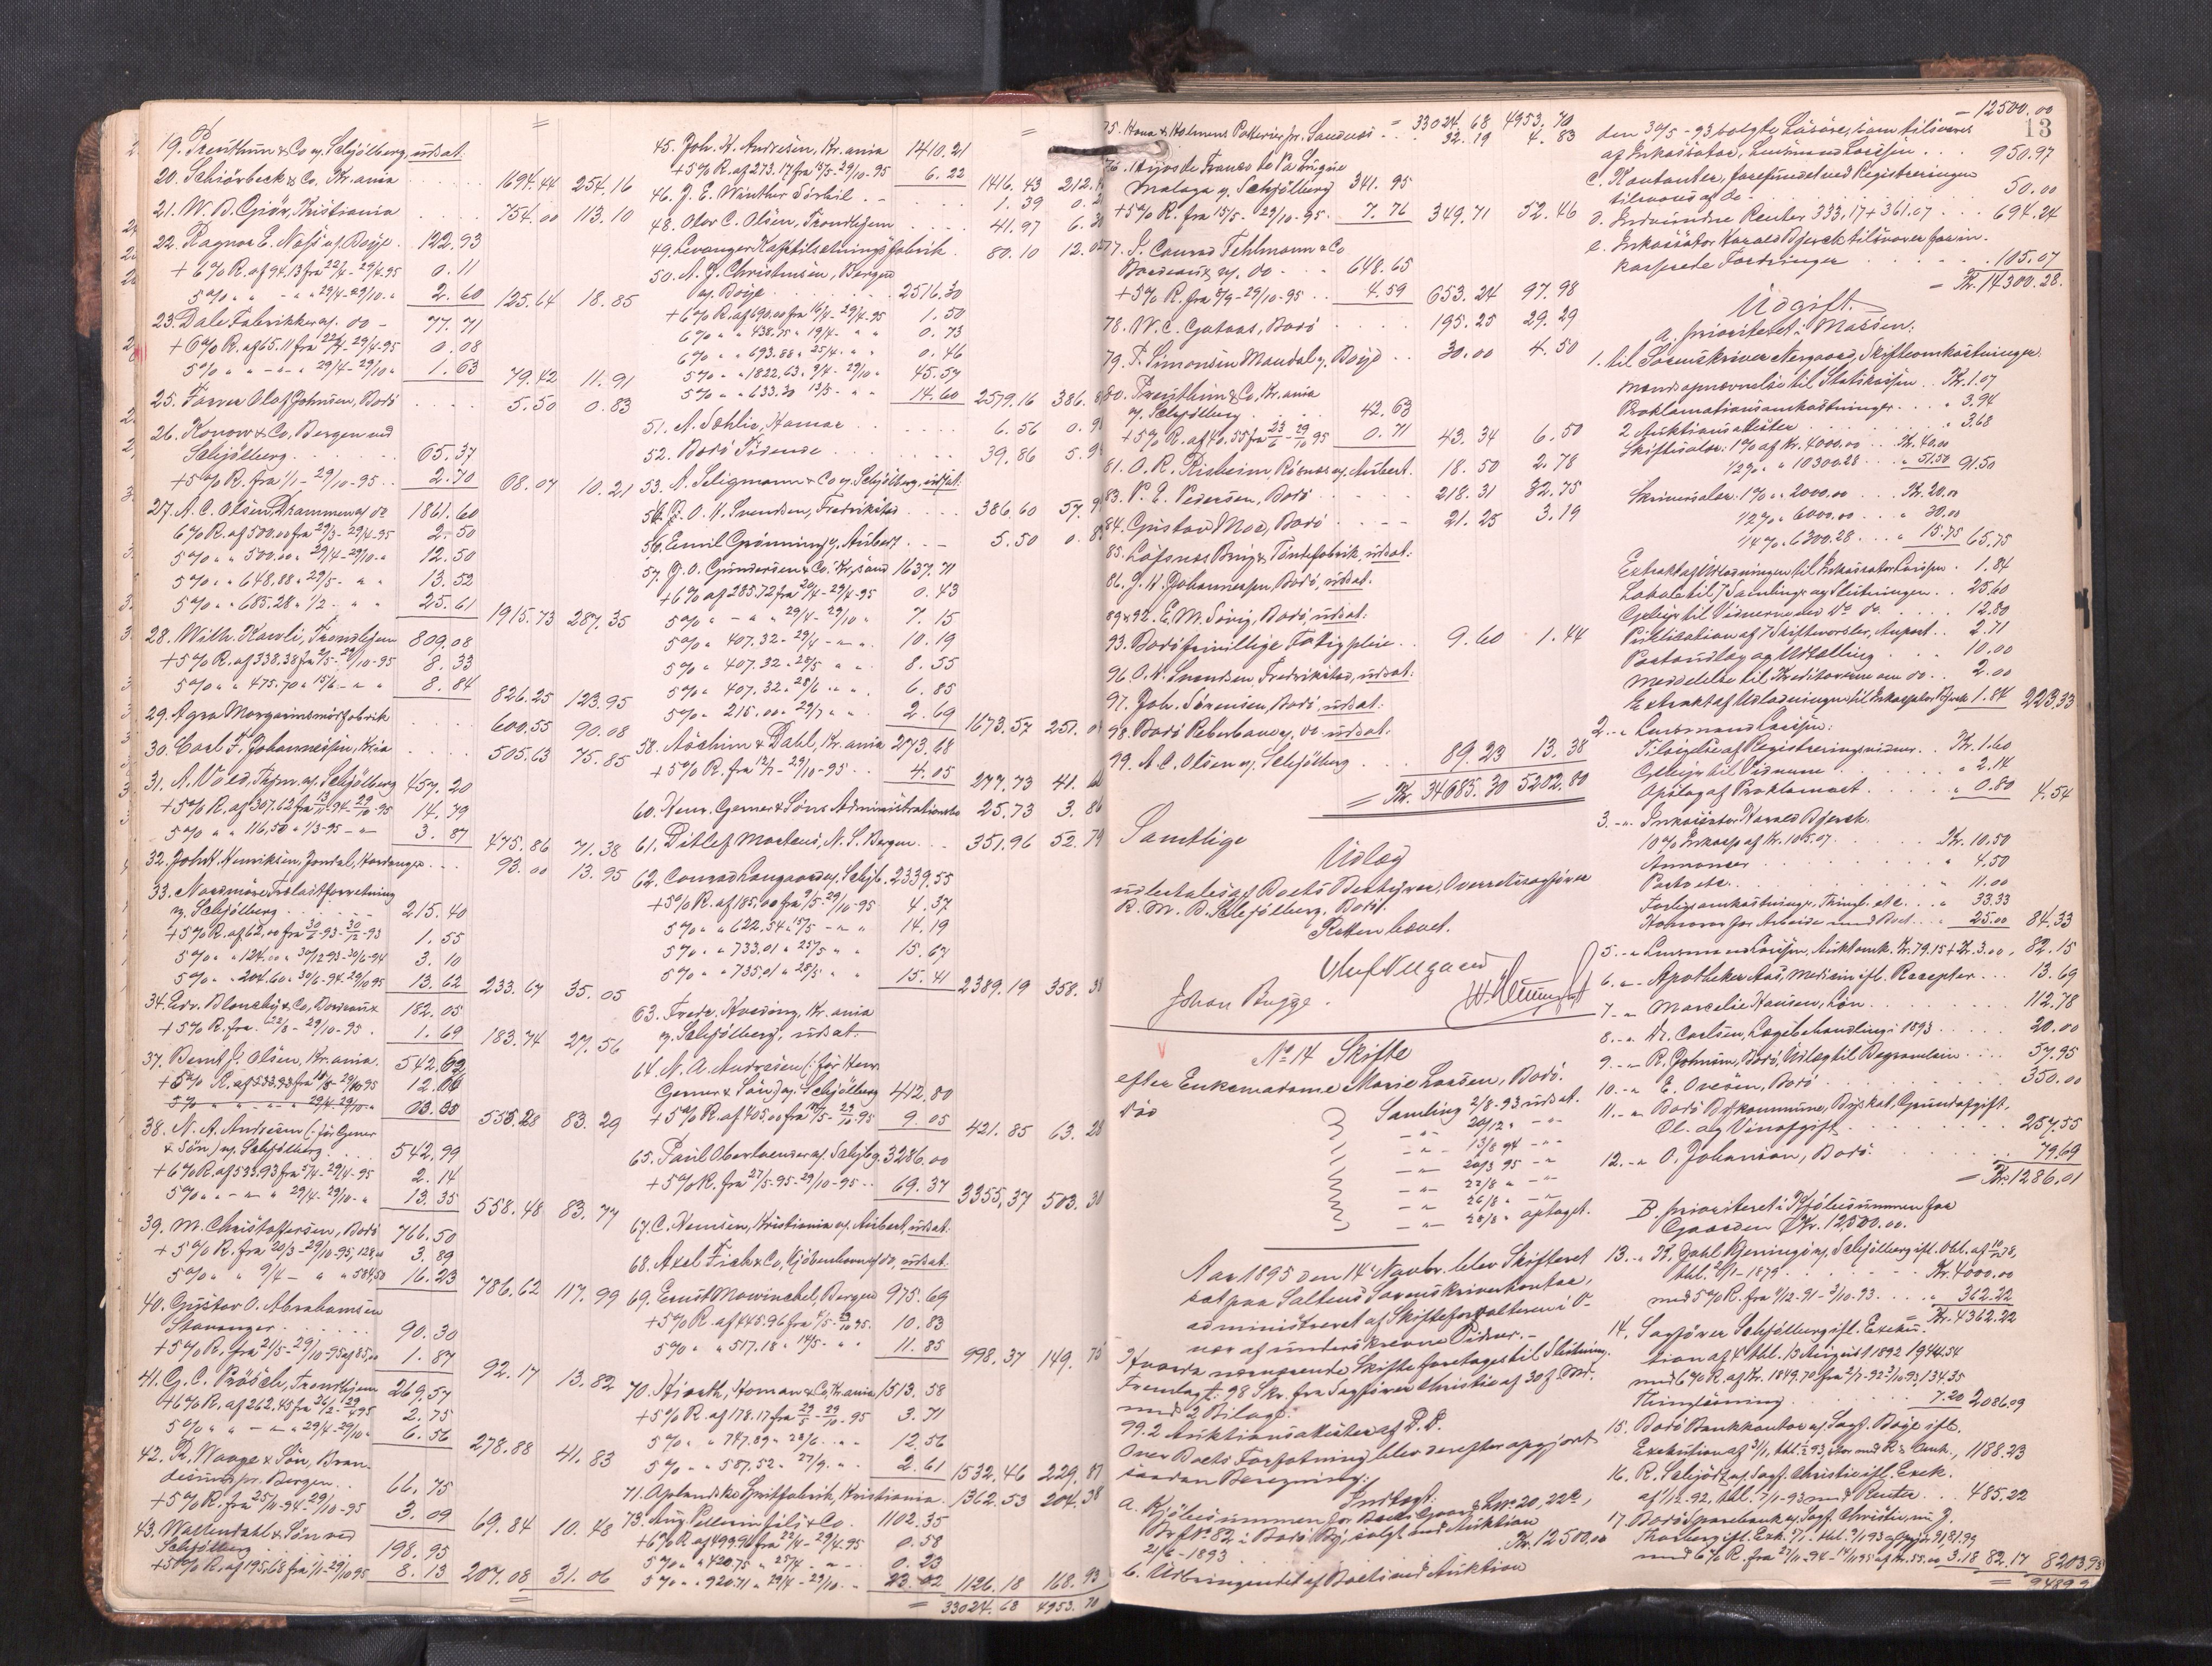 19. Prenthun & Co v. Schjölberg, udsat.
20. Schiörbeck & Co. Kr.ania . . . 1694.44 254.16
21. W. B. Gjör, Kristiania . . . 754.00 113.10
22. Ragnar E. Næss v. Böije . 122.93
+ 6% R. af 94.13 fra 22/4 - 29/4-95 0.11
5% " " - " " 29/4-29/10 " 2.60 125.64 18.85
23. Dale Fabrikker v. do - 77.71
+ 6% R. af 65.11 fra 22/4 - 29/4-95 0.08
5% " " - " " 29/4-29/10 " 1.63 79.42 11.91
25. Farver Olaf Johnsen, Bodö . . . 5.50 0.83
26. Konow & Co, Bergen ved
Schjölberg . . . 65.37
+ 5% R. fra 1/1 - 29/10-95 . . 2.70 68.07 10.21
27. A. C. Olsen, Drammen v. do 1861.60
6% R. af 500.00 fra 29/3 - 29/4-95 2.50
5% " " 500.00 " 29/4-29/10 " 12.50
5% " " 648.88 " 29/5 - " " 13.52
5% " " 685.28 " 1/2 - " " 25.61 1915.73 287.35
28. Wilh. Kavli, Trondhjem 809.08
+ 5% R. af 338.38 fra 2/5 - 29/10-95 8.33
5% " " 475.70 " 15/6 - " " 8.84 826.25 123.95
29. Agra Margarinsmörfabrik . . . 600.55 90.08
30. Carl F. Johannessen, Kria . . . 505.63 75.85
31. A. Void, Thjm v. Schjölberg 457.20
+ 5% R. af 307.62 fra 13/11-94 - 29/10-95 14.79
5% " " 116.50 " 1/3-95 - " 3.87 475.86 71.38
32. John Henriksen, Jondal, Hardanger . . . 93.00 13.95
33. Nordmöre Trælastforretning
v. Schjölberg . . . 215.40
+ 5% R. af 62.00 fra 30/6-93 - 30/12-93 1.55
5% " " 124.00 " 30/12 93 - 30/6-94 3.10
5% " " 204.60 " 30/6-94-29/10 95 13.62 233.67 35.05
34. Edv. Blonchy & Co, Bordeaux 182.05
+ 5% R. fra 22/8 - 29/10-95 . 1.69 183.74 27.56
37. Bernt J. Olsen, Kr.ania. 542.62
+ 5% R. af 533.93 fra 12.66
5% " " - " " 29/4-29/10 " 555.28 83.29
38. N. A. Andresen (: för Gerner
& Sön) v. Schjölberg . . . 542.99
+ 6% R. af 533.93 fra 5/4 - 29/4-95 2.14
5% " " - " " 29/4-29/10 - " 13.35 558.48 83.77
39. M. Christoffersen, Bodö 766.50
+ 5% R. fra 20/3 - 29/10-95, 128.00 3.89
5% " " 9/4 - " " 584.50 16.23 786.62 117.99
40. Gustav O. Abrahamsen
Stavanger . . . 90.30
+ 5% R. fra 21/5 - 29/10-95 af 85.00 1.87 92.17 13.82
41. G. C. Pösch, Trondhjem 269.57
+ 6% R. af 262.45 fra 26/2 - 29/4 95 2.75
5% " " - " " 29/4-29/10 " 6.56 278.88 41.83
42. R. Waage & Sön, Bran-
desund pr. Bergen . . 66.75
+ 5% R. fra 25/11-94 - 29/10-95 3.09 69.84 10.48
43. Wallendahl & Sön ved
Schjölberg . . . 198.95
+ 5% R. af 195.68 fra 1/1-29/10 95 8.13 207.08 31.06
45. Joh. H. Andresen, Kr.ania 1410.21
+ 5% R. af 273.17 fra 15/5 - 29/10-95 6.22 1416.43 212.
46. J. E. Winther Sörkil . - 1.39 0.
48. Olav C. Olsen, Trondhjem . . . 41.97 6.
49. Levanger Kaffetilsetningsfabrik . 80.10 12.
50. A. J. Christensen, Bergen
v. Böije . . . 2516.30
+ 6% R. af 690.00 fra 16/4 - 29/4-95 1.50
6% " " 438.75 " 19/4 - " " 0.73
6% " " 693.88 " 25/4 - " " 0.46
5% " " 1822.63 " 29/4 - 29/10 " 45.57
5% " " 633.30 " 13/5 - " " 14.60 2579.16 386.
51. A. Sæhlie, Hamar . . . 6.56 0.9
52. Bodö Tidende . . . 39.86 5.9
53. N. Seligmann & Co v. Schjölberg, udsat.
54. O. N. Svendsen, Fredrikstad . . . 386.60 57.
56. Emil Grönning v. Aubert . . - 5.50 0.8
57. J. O. Gundersen & Co. Kr.sand 1637.71
+ 6% af 285.72 fra 20/4 - 29/4-95 0.43
5% " - " " 29/4 - 29/10 " 7.15
5% " 407.32 - 29/4 - " " 10.19
5% " 407.32 " 28/5 " " 8.55
5% " 407.32 " 28/6 " " 6.85
5% " 215.00 " 29/7 " " 2.69 1673.57 251.0
58. Aschim & Dahl, Kr.ania 273.68
+ 5% R. fra 12/7 - 29/10-95 . . 4.05 277.73 41.
60. Henr. Gerner & Söns Administrationsbo 25.73 3.86
61. Ditlef Martens, N. S. Bergen . . 351.96 52.79
62. Conrad Langaard v. Schjb. 2339.55
+ 5% R. af 185.00 fra 9/5 - 29/10-95 4.37
5% " " 622.54 " 15/5 - " " 14.19
5% " " 733.01 " 25/5 " " 15.67
5% " " 735.01 " 28/5 " " 15.41 2389.19 358.38
63. Fredr. Kvesing, Kr.ania
v. Schjölberg, udsat.
64. N. A. Andresen (: för Henr.
Gerner & Sön) v. Schjölberg 412.80
+ 5% R. af 405.00 fra 19/5 - 29/10-95 9.05 421.85 63.28
65. Paul Oberlaender v. Schjbg. 3286.00
+ 5% R. fra 27/5-95-29/10-95 . . 69.37 3355.37 503.31
67. C. Hemsen, Kristiania v. Aubert, udsat.
68. Axel Fick & Co, Kjöbenhavn v. do, udsat.
69. Ernst Mowinckel, Bergen 975.69
+ 5% R. af 445.96 fra 4/5 - 29/10 95. 10.83
5% " " 517.18 " 14/5 - " " 11.85 998.37 149.75
70. Hiorth, Homan & Co, Kr.ania 1513.58
+ 5% R. af 178.17 fra 29/5 - 29/10-95 3.71
5% " " 747.89 " 28/6 . " " 12.56
5% " " 587.52 " 27/9 . " . 2.61 1532.46 229.87
71. Aplandske Spritfabrik, Kristiania . 1362.53 204.38
73. Aug. Pellerin fils & Co. 1102.35
+ 6% R. af 499.91 fra 22/4 - 29/4-95 0.58
5% " " 420.75 " 25/4 . " . 0.23
5% " " 920.71 " 29/4 - 29/10 . " 23.02 1126.18 168.93
= 33024.68 4953.70
= 33024.68 4953.70
75. Hans & Holmens Potterier pr. Sandnes . - 32.19 4.83
76. Hijos de Franco de Pa Lugue
Malaga v. Schjölberg 341.95
+ 5% R. fra 15/5 - 29/10-95 . 7.76 349.71 52.46
77. S. Conrad Fehlmann & Co
Bordeaux v. do . . . 648.65
+ 5% R. fra 9/9 - 29/10-95 . . 4.59 653.24 97.98
78. W. C. Gutaas, Bodö . . . 195.25 29.29
79. P. Simonsen Mandal v. Böije . . 30.00 4.50
80. Prenthun & Co, Kr.ania
v. Schjölberg . . . 42.63
+ 5% R. af 40.55 fra 23/6 - 29/10 95 0.71 43.34 6.50
81. O. R. Risheim, Rösnæs v. Aubert . 18.50 2.78
83. P. E. Pedersen, Bodö . . . 218.31 32.75
84. Gustav Moe, Bodö . . . 21.25 3.19
85. Löfsnæs Brug & Töndefabrik, udsat.
86. J. H. Johannessen, Bodö, udsat.
89 & 92. E. M. Sörvig, Bodö, udsat.
93. Bodö frivillige Fattigpleie . . 9.60 1.44
96. O. N. Svendsen, Fredrikstad, udsat.
97. Joh. Sörensen, Bodö, udsat.
98. Bodö Reberbane v. do udsat.
99. A. C. Olsen v. Schjölberg . . . 89.23 13.38
= Kr. 34685.30 5202.80
Samtlige
Udlæg
udbetales af Boets Bestyrer, Overretssagförer
R. M. B. Schjölberg, Bodö.
Retten hævet.
Johan Bugge.
No 14 Skifte
efter Enkemadame Marie Larsen, Bodö.
Samling 2/8-93 udsat.
- " - 20/12 " - "
- " - 13/8 94 - "
- " - 20/3 95 - "
- " - 22/8 " - "
- " - 26/8 " - "
- " - 28/8 " optaget.
Aar 1895 den 14. Novbr. blev Skifteret
sat paa Saltens Sorenskriverkontor,
administreret af Skifteforvalteren i O-
vær af underskrevne Vidner. -
Hvorda nærværende Skifte foretages til Slutning.
Fremlagt: 98 Skr. fra Sagförer Christie af 30 f. Md.
med 2 Bilag.
99. 2 Auktionsakter af D. D.
Over Boets Forfatning blev derefter opgjort
saadan Beregning:
Indtægt:
a. Kjöbesummen for Boets Gaard Lno 20, 22c,
Br No 52 i Bodö By, solgt ved Auktion
21/6 - 1893 . . . Kr. 12500.00
b. Udbringendet af Boets ved Auktion
= 12500.00
13
den 30/5 - 93 solgte Lösöre, som tilsvares
af Inkassator, Lensmand Larssen . . . 950.97
c. Kontanter, forefundet ved Registreringen
tilsvares af do . . . 50.00
d. Indvundne Renter 333.17 + 361.07 . . . 694.24
e. Inkassator Harald Bjerch tilsvarer for in-
kasserede Fordringer . . . 105.07
= Kr. 14300.28.
Udgift.
A. prioriteret i Massen:
1. til Sorenskriver Nergaard, Skifteomkostninger:
Mandsopnævnelse til Statskassen . . Kr. 1.07
Proklamationsomkostninger . . . " 3.94
2 Auktionsakter . . . " 3.68
Skiftesalær: 1% af Kr. 4000.00 . . Kr. 40.00
1/2% " " 10300.28 . . " 51.50 91.50
Skriversalær: 1% " " 2000.00 . . . Kr. 20.00
1/2% " 6000.00 . . . " 30.00
1/4% " 6300.28 . . . " 15.75 65.75
Extrakt af Udlodningen til Inkassator Larssen . 1.84
Lokale til 7 Samlinger og Slutningen . . 25.60
Gebyr til Vidnerne ved do do . . 12.80
Publikation af 7 Skifteværsler, Auport . . 2.71
Postudlæg og Udtælling . . . 10.00
Meddelelse til Kreditorerne om do . . 2.00
Extrakt af Udlodningen til Inkassator Bjerch 1.84 223.33
2. - " Lensmand Larssen:
Tilsigelse af Registreringsvidner . . Kr. 1.60
Gebyr til Vidnerne . . . " 2.14
Opslag af Proklamaet . . . " 0.80 4.54
3. - " Inkassator Harald Bjerch.
10% Inkasso af Kr. 105.07 . . . Kr. 10.50
Annoncer . . . " 4.50
Porto etc. . . . " 11.00
Forligsomkostninger, Thingl. etc. . . " 33.33
Honorar for Arbeide med Boet . . " 25.00 84.33
5. - " Lensmand Larssen, Auktomk. Kr. 79.15 + Kr. 3.00, 82.15
6. - " Apotheker Aas, Medicin ifl. Recepter . . . 13.69
7. - " Marcelie Hansen, Lön . . . 112.78
8. - " Dr. Carlsen, Lægebehandling i 1893 . . . 20.00
9. - " R. Johnsen, Bodö, Udlæg til Begravelsen . . . 57.95
10. - " E. Ovesen, Bodö . . . 350.00
11. - " Bodö Bykommune, Byskat, Grundafgift,
Öl- og Vinafgift . . . 257.55
12. - " O. Johansen, Bodö . . . 79.69
= Kr. 1286.01
B. prioriteret i Kjöbesummen for
Gaarden Kr. 12,500.00.
13. - " K. Zahl Kjerringö v. Schjölberg ifl. Obl. af 10/12 78,
thl. 20/1 - 1879 . . . Kr. 4000.00
med 5% R. fra 9/12-91 - 3/10-93 . . . " 362.22
Kr. 4362.22
14. Sagförer Schjölberg ifl. Exeku-
tion af 4 thl. 13 August 1892 1944.54
med 6% R. af Kr. 1849.70 fra 21/7-92 - 3/10 93, 134.35
Thinglæsning . . . 7.20 2086.09
15. Bodö Bankkontor v. Sagf. Böije ifl.
Exekution af 3/1, thl. 2/2 93, stor med R. & Omk., 1188.23
16. R. Schjöth v. Sagf. Christie ifl. Exek.
af 1/12-92, thl. 7/1-93 med Renter . . . 485.22
17. Bodö Sparebank v. Sagf. Christie, m. J.
Thorberg ifl. Exk. 7/1, thl. 9/1 93 opgjör 81.99
med 6% R. fra 27/11-94 - 14/11 95 af Kr. 55.00 3.18 82.17 8203.93